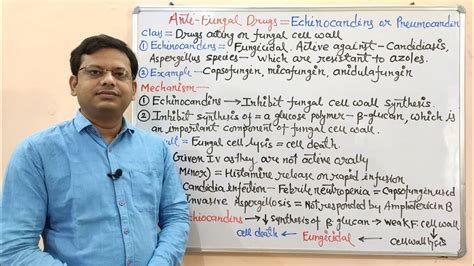 Anti-Fungal Drugs = Echinocandins or Pneumocandin
Class = Drugs acting on fungal cell wall
① Echinocandins = Fungicidal. Active against - Candidiasis,
Aspergillus species - which are resistant to azoles.
② Example - Caspofungin, micafungin, anidulafungin
Mechanism -
① Echinocandins → Inhibit fungal cell wall synthesis.
② Inhibit synthesis of = a glucose polymer - β-glucan, which is
an important component of fungal cell wall.
= Fungal cell lysis = cell death.
Given I.v as they are not active orally
Minor) = Histamine release on rapid infusion
Candida infection - Febrile neutropenia = Caspofungin used
Invasive Aspergillosis = Not responded by Amphotericin B
→ ↓ synthesis of β glucan → weak F. cell wall
cell death ← Fungicidal ← cell wall lysis